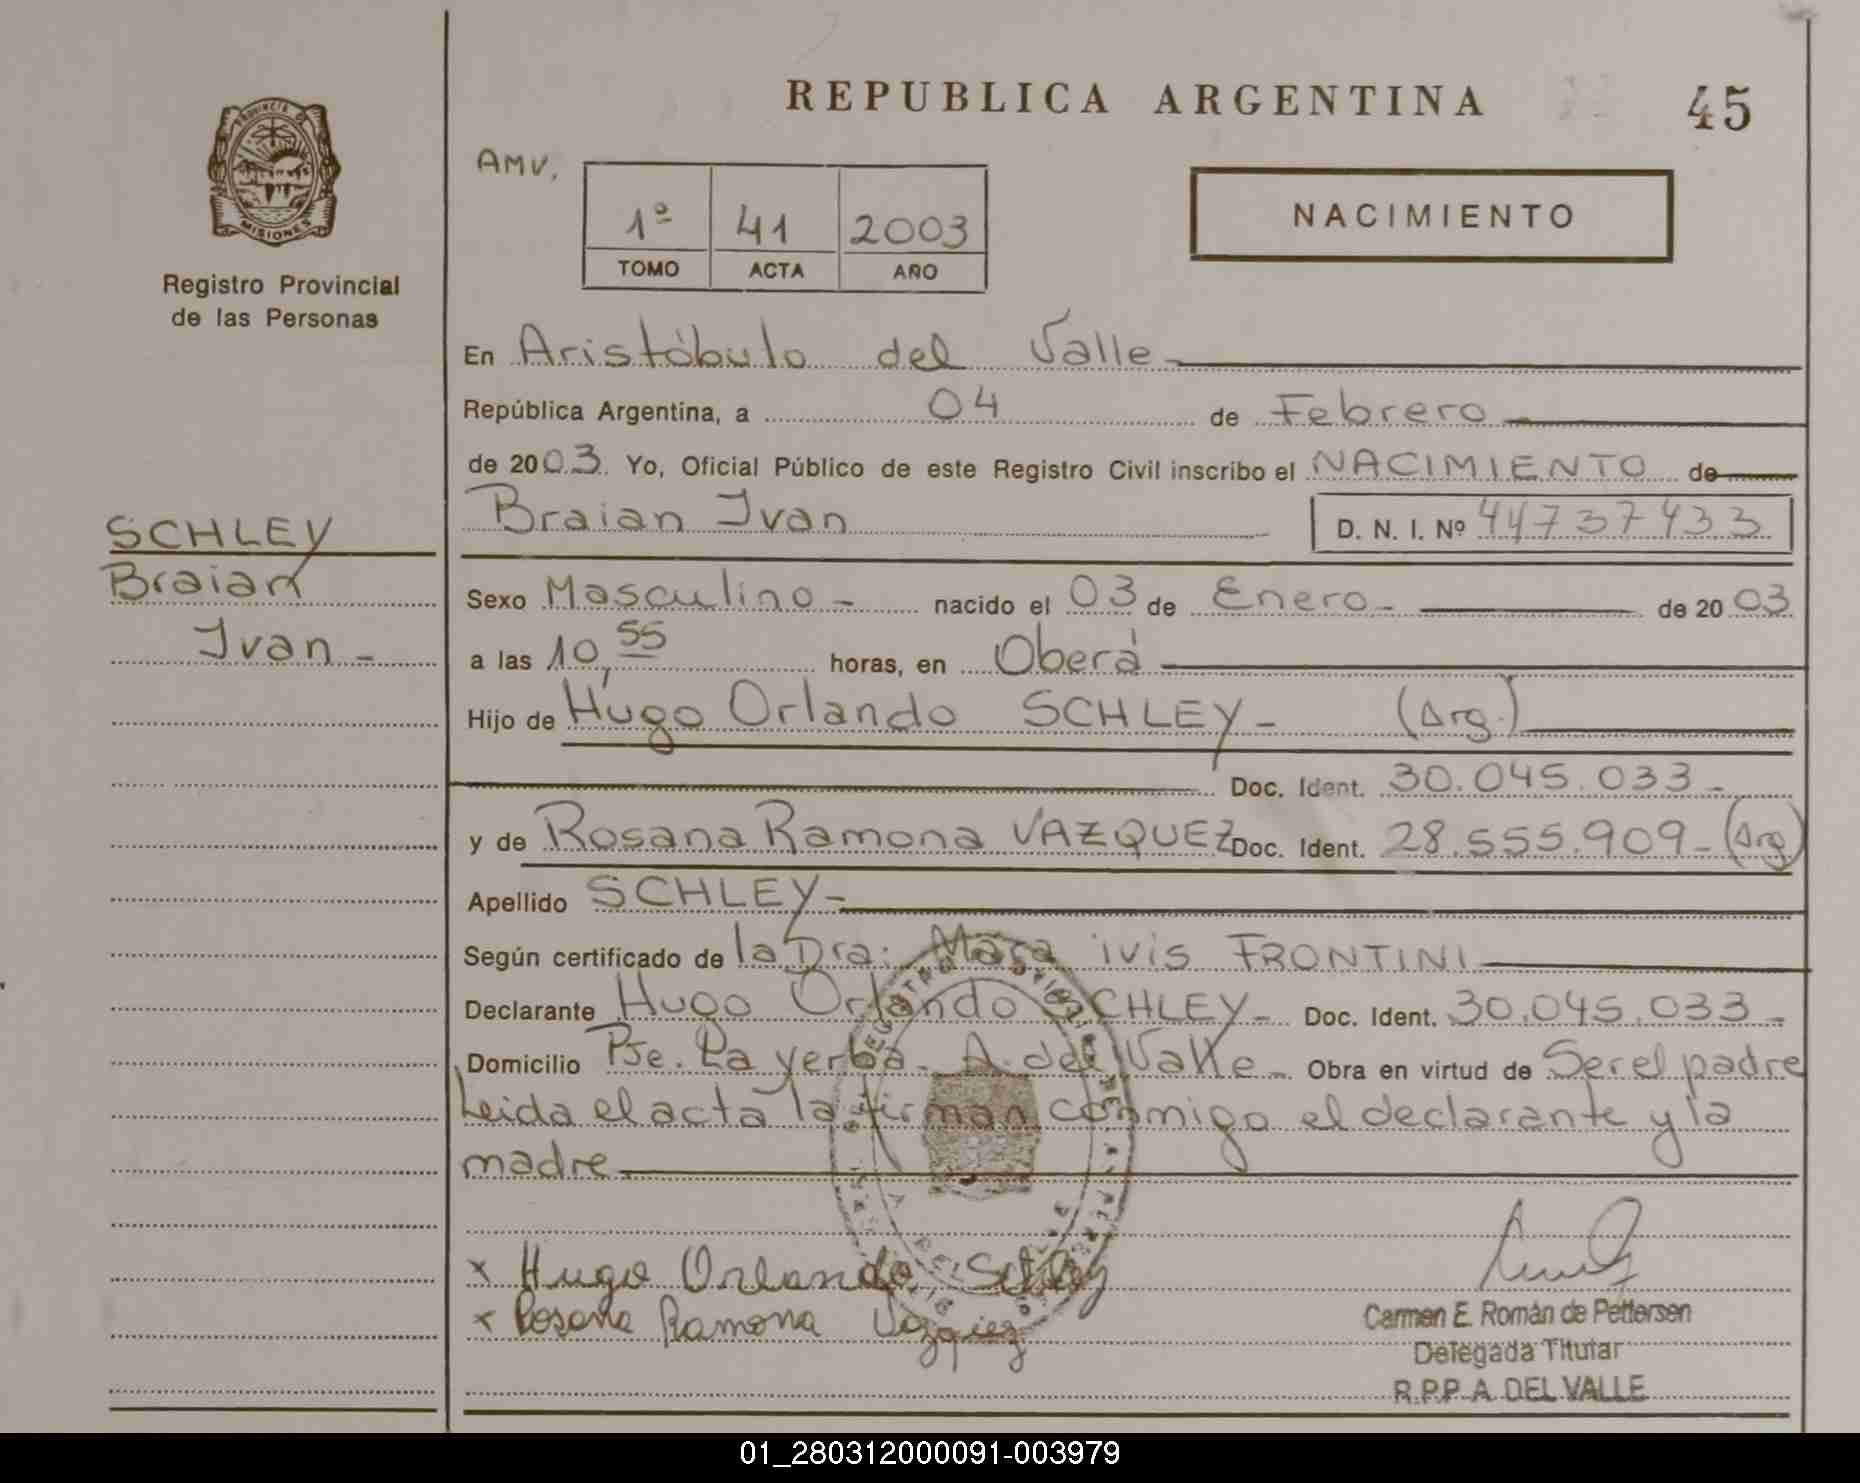 REPUBLICA ARGENTINA
45
PROVINCIA D
MISIONES
Registro Provincial
de las Personas
AMV.
1º 41 2003
TOMO ACTA AÑO
NACIMIENTO
En Aristóbulo del Valle
República Argentina, a 04 de Febrero
de 2003. Yo, Oficial Público de este Registro Civil inscribo el NACIMIENTO de
Braian Ivan D. N. I. Nº 44737433
SCHLEY
Braian
Ivan -
Sexo Masculino - nacido el 03 de Enero - de 2003
a las 10,55 horas, en Oberá
Hijo de Hugo Orlando SCHLEY - (Arg.)
Doc. Ident. 30.045.033 -
y de Rosana Ramona VAZQUEZ Doc. Ident. 28.555.909 - (Arg)
Apellido SCHLEY -
Según certificado de la Dra: Mara ivis FRONTINI
Declarante Hugo Orlando SCHLEY - Doc. Ident. 30.045.033 -
Domicilio Pje. La yerba - A. del Valle - Obra en virtud de Ser el padre
Leida el acta la firman conmigo el declarante y la
madre
x Hugo Orlando Schley
x Rosana Ramona Vazquez
Carmen E. Román de Pettersen
Delegada Titular
R.P.P A. DEL VALLE
01_280312000091-003979